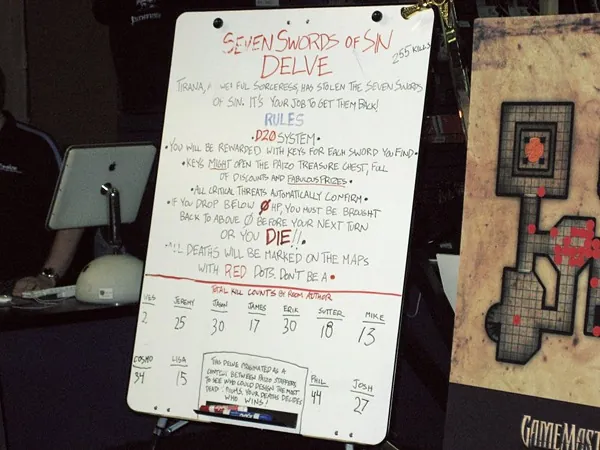 SEVEN SWORDS OF SIN
DELVE
255 KILLS
TIRANA, FUL SORCERESS, HAS STOLEN THE SEVEN SWORDS
OF SIN. IT'S YOUR JOB TO GET THEM BACK!
RULES
• D20 SYSTEM •
• YOU WILL BE REWARDED WITH KEYS FOR EACH SWORD YOU FIND •
• KEYS MIGHT OPEN THE PAIZO TREASURE CHEST, FULL
OF DISCOUNTS AND FABULOUS PRIZES •
• ALL CRITICAL THREATS AUTOMATICALLY CONFIRM •
• IF YOU DROP BELOW 0 HP, YOU MUST BE BROUGHT
BACK TO ABOVE 0 BEFORE YOUR NEXT TURN
OR YOU DIE!!•
• ALL DEATHS WILL BE MARKED ON THE MAPS
WITH RED DOTS. DON'T BE A •
TOTAL KILL COUNTS BY ROOM AUTHOR
WES JEREMY JASON JAMES ERIK SUTTER MIKE
2 25 30 17 30 18 13
COSMO LISA PHIL JOSH
34 15 44 27
THIS DELVE ORIGINATED AS A
CONTEST BETWEEN PAIZO STAFFERS
TO SEE WHO COULD DESIGN THE MOST
DEADLY ROOMS. YOUR DEATHS DECIDES
WHO WINS!
GAMEMAST